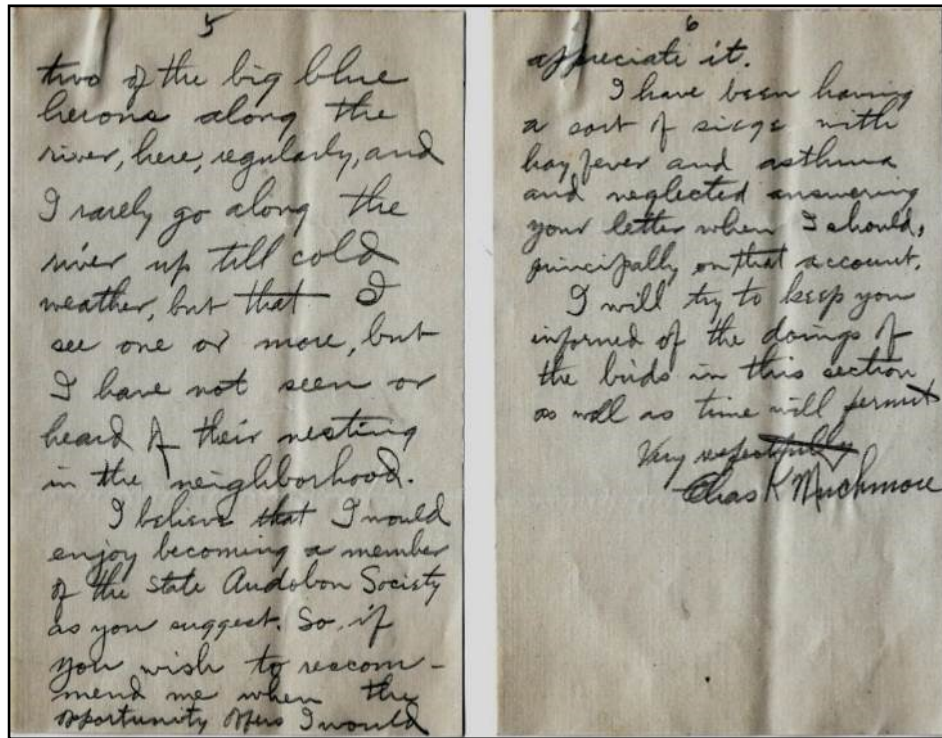 5
two of the big blue
herons along the
river, here, regularly, and
I rarely go along the
river up till cold
weather, but that I
see one or more, but
I have not seen or
heard of their nesting
in the neighborhood.
I believe that I would
enjoy becoming a member
of the State Audobon Society
as you suggest. So, if
you wish to reccom-
mend me when the
opportunity offers I would
6
appreciate it.
I have been having
a sort of siege with
hay fever and asthma
and neglected answering
your letter when I should,
principally on that account.
I will try to keep you
informed of the doings of
the birds in this section
as well as time will permit
Very respectfully
Chas K Muchmore